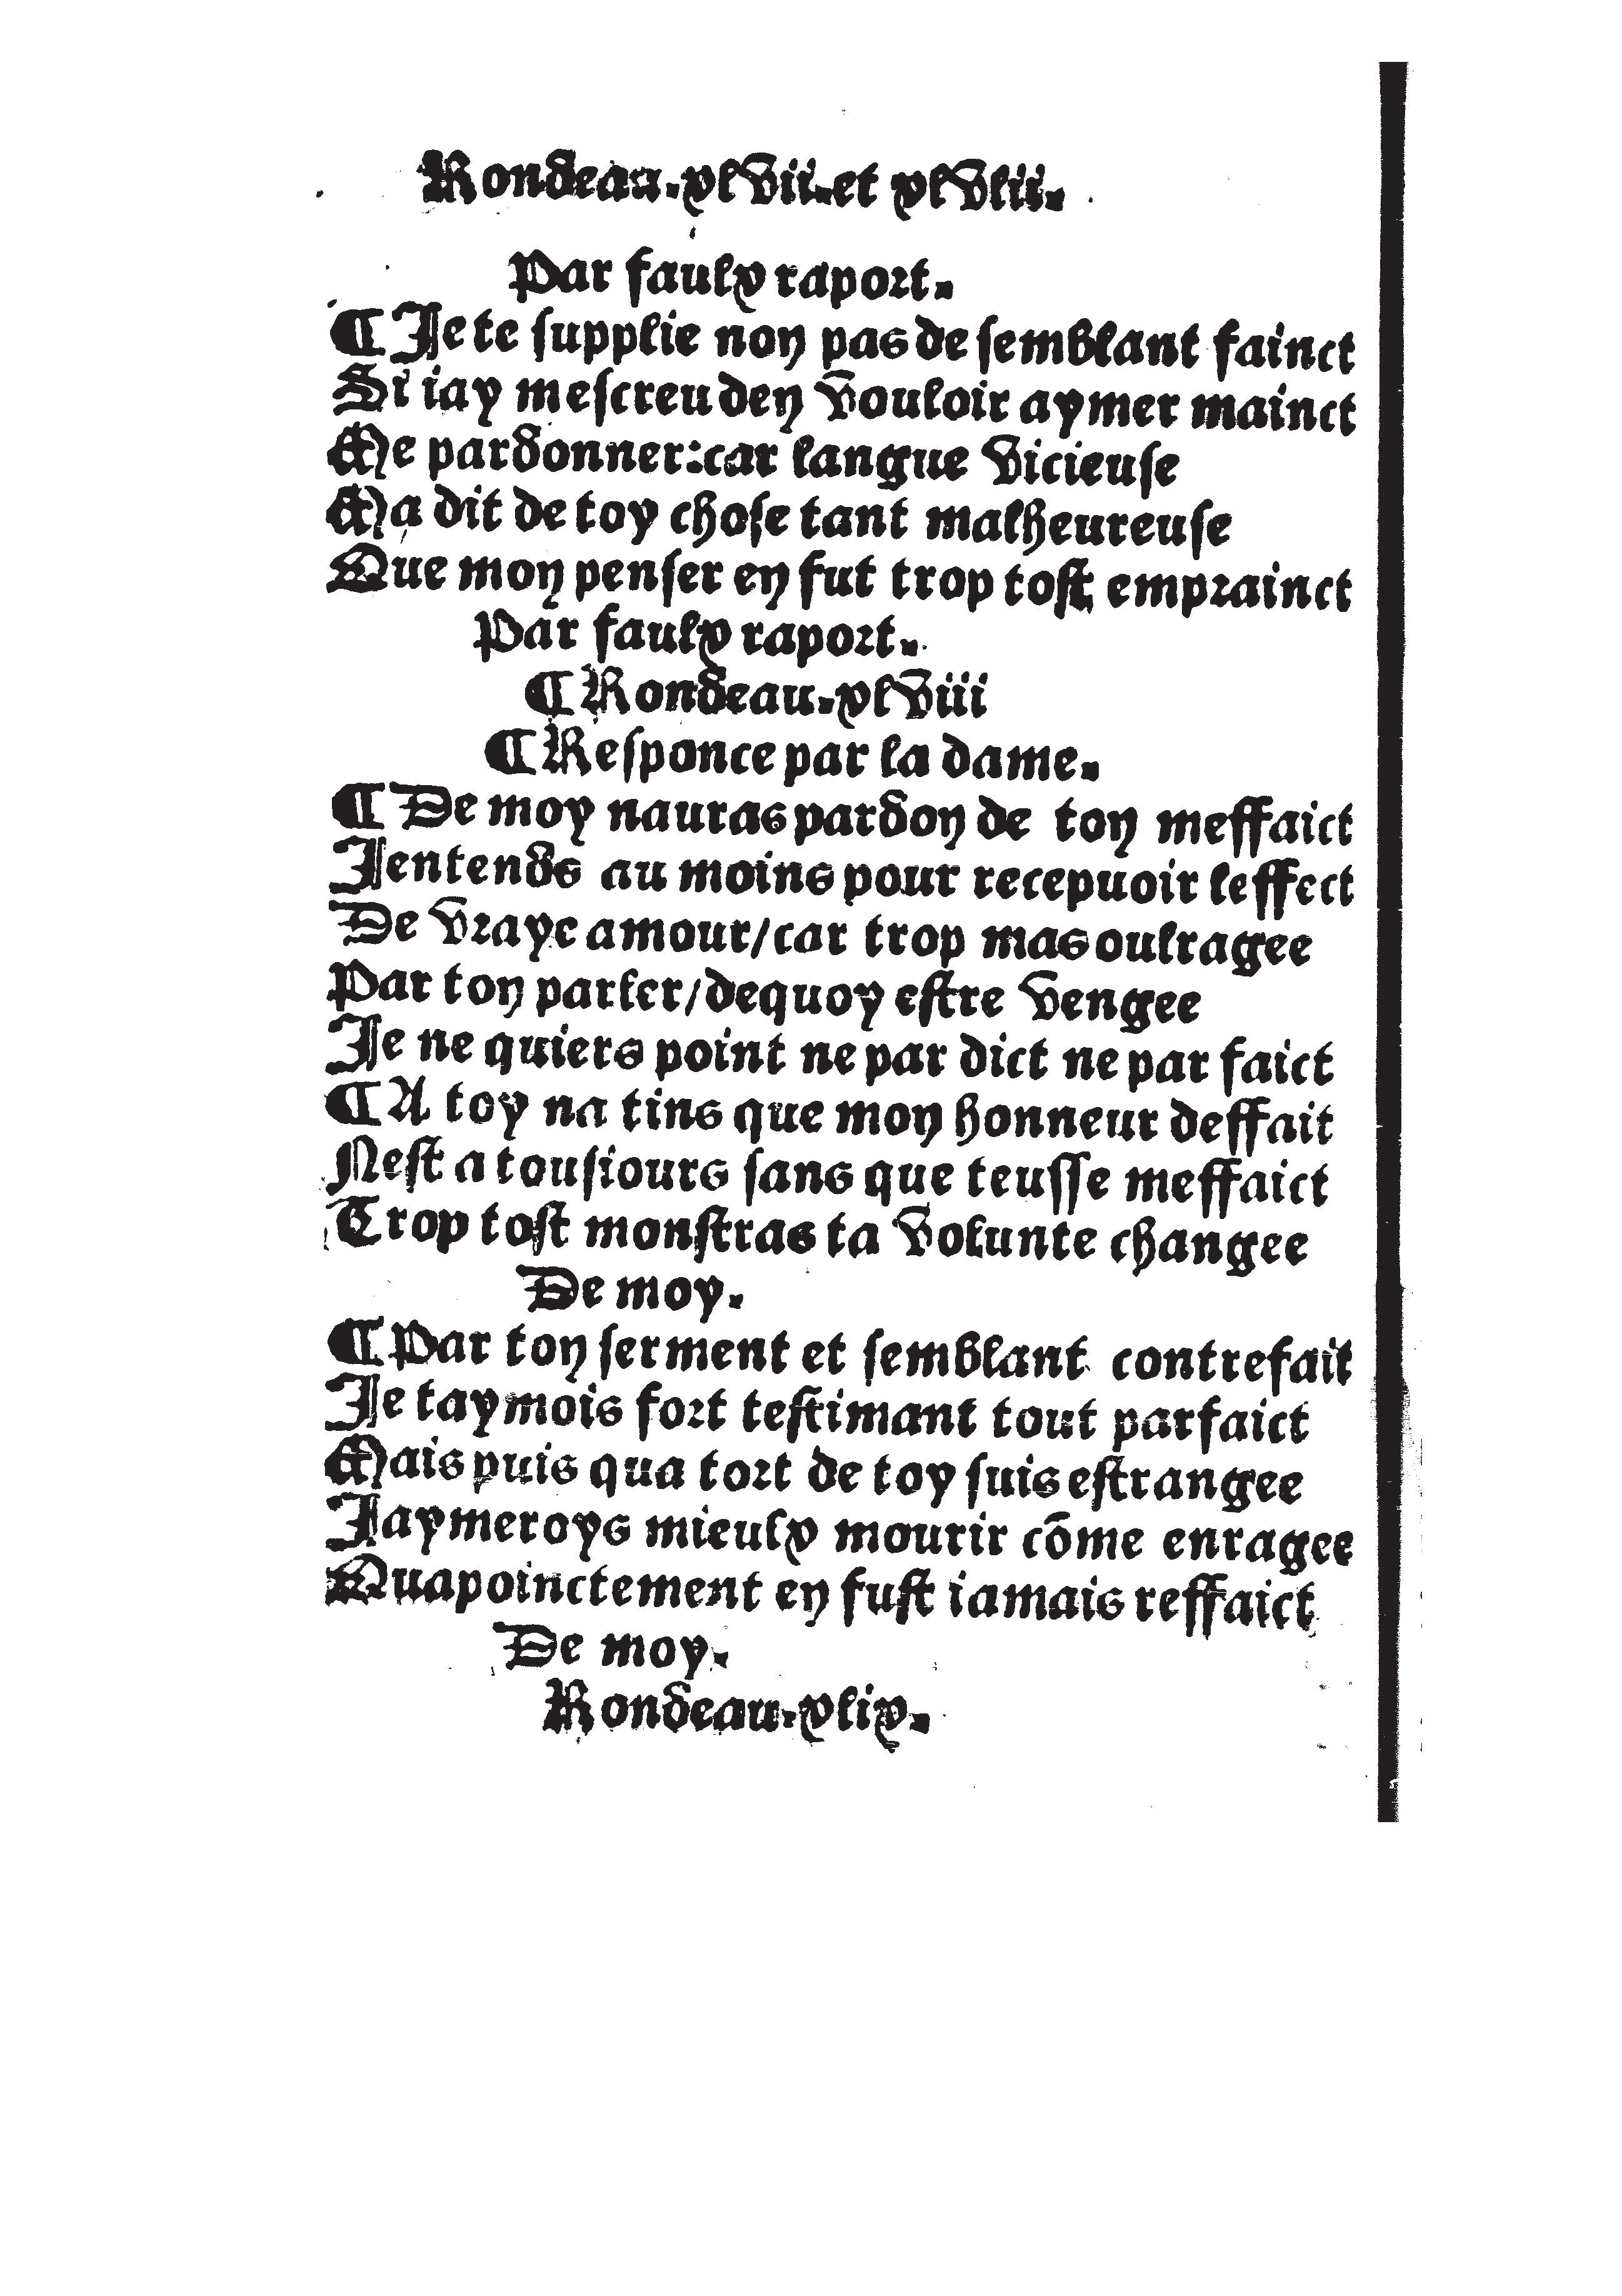 Rondeau.xlvii.et xlvlii.
Par faulx raport.
¶ Je te supplie non pas de semblant fainct
Si iay mescreu den vouloir aymer mainct
Me pardonner:car langue vicieuse
Ma dit de toy chose tant malheureuse
Que mon penser en fut trop tost emprainct
Par faulx raport.
¶ Rondeau.xlviii
¶ Responce par la dame.
¶ De moy nauras pardon de ton meffaict
Jentends au moins pour recepuoir leffect
De vraye amour/car trop mas oultragee
Par ton parler/dequoy estre vengee
Je ne quiers point ne par dict ne par faict
¶ A toy na tins que mon honneur deffait
Nest a tousiours sans que teusse meffaict
Trop tost monstras ta volunte changee
De moy.
¶ Par ton serment et semblant contrefait
Je taymois fort testimant tout parfaict
Mais puis qua tort de toy suis estrangee
Jaymeroys mieulx mourir cõme enragee
Quapoinctement en fust iamais reffaict
De moy.
Rondeau.xlix.